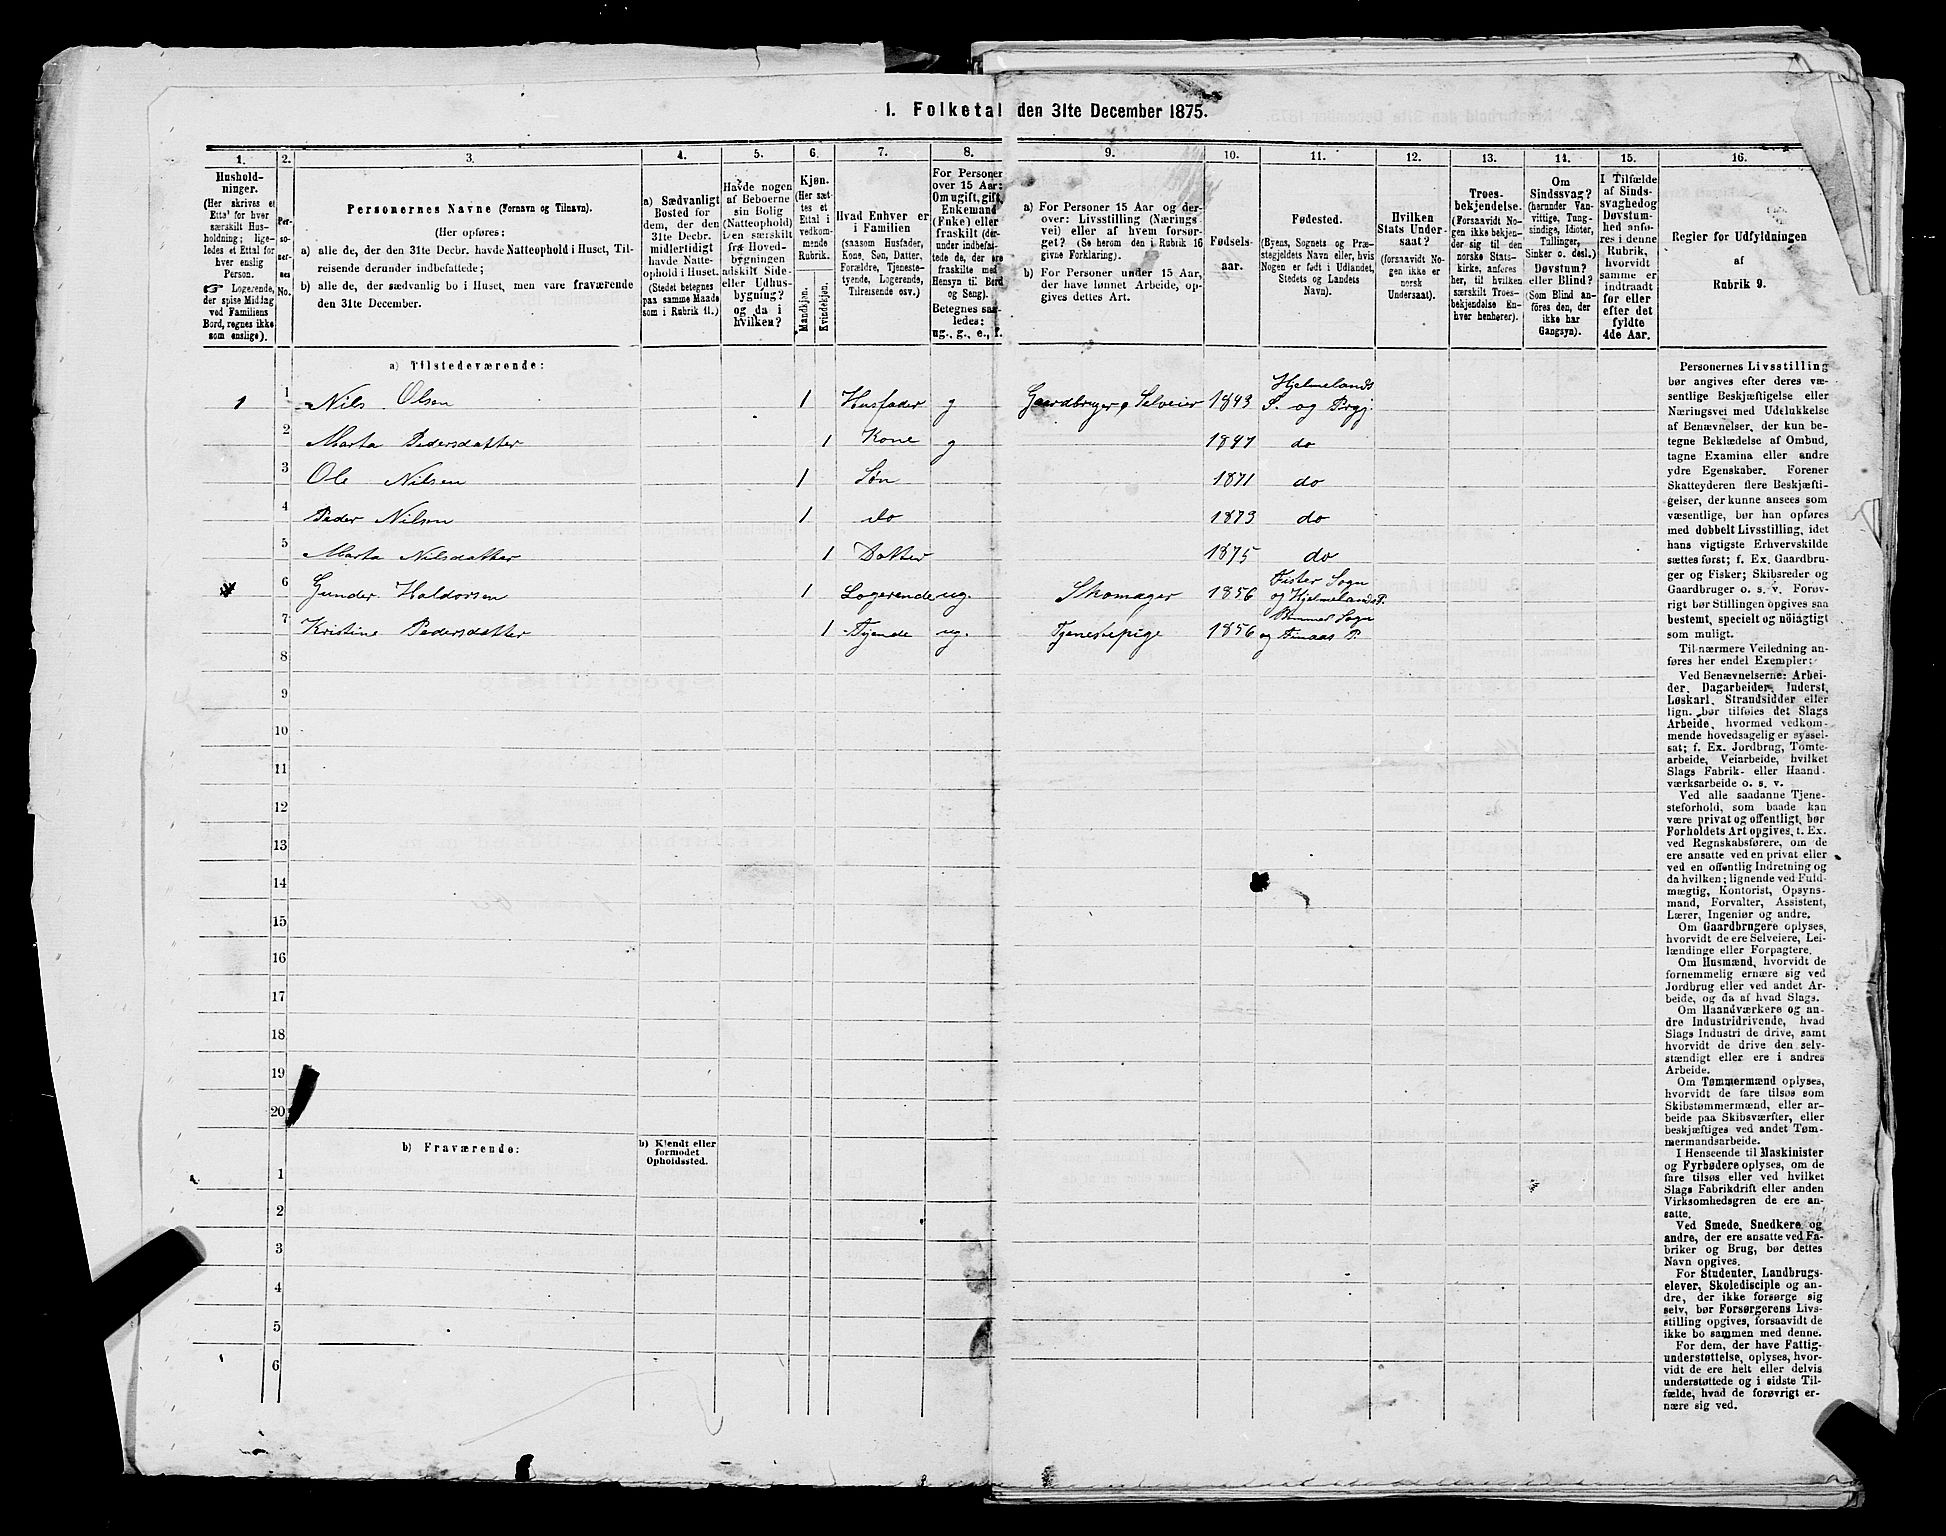 1. Folketal den 31te December 1875.
1. 2. 3. 4. 5. 6. 7. 8. 9. 10. 11. 12. 13. 14. 15. 16.
Hushold-
ninger.
(Her skrives et
Ettal for hver
særskilt Hus-
holdning; lige-
ledes et Ettal for
hver enslig
Person.
☞ Logerende,
der spise Middag
ved Familiens
Bord, regnes ikke
som enslige).
Per-
so-
ner-
nes
No.
Personernes Navne (Fornavn og Tilnavn).
(Her opføres:
a) alle de, der den 31te Decbr. havde Natteophold i Huset, Til-
reisende derunder indbefattede;
b) alle de, der sædvanlig bo i Huset, men vare fraværende
den 31te December.
a) Sædvanligt
Bosted for
dem, der den
31te Decbr.
midlertidigt
havde Natte-
ophold i Huset.
(Stedet betegnes
paa samme Maade
som i Rubrik 11.)
Havde nogen
af Beboerne
sin Bolig
(Natteophold)
i en særskilt
fra Hoved-
bygningen
adskilt Side-
eller Udhus-
bygning?
og da i
hvilken?
Kjøn.
(Her sæt-
tes et
Ettal i
vedkom-
mende
Rubrik.
Mandkjøn.
Kvindekjøn.
Hvad Enhver er
i Familien
(saasom Husfader,
Kone, Søn, Datter,
Forældre, Tjeneste-
tyende, Logerende,
Tilreisende osv.)
For Personer
over 15 Aar:
Om ugift, gift,
Enkemand
(Enke) eller
fraskilt (der-
under indbefat-
tede de, der ere
fraskilte med
Hensyn til Bord
og Seng).
Betegnes saa-
ledes:
ug., g., e., f.
a) For Personer 15 Aar og der-
over: Livsstilling (Nærings-
vei) eller af hvem forsør-
get? (Se herom den i Rubrik 16
givne Forklaring).
b) For Personer under 15 Aar,
der have lønnet Arbeide, op-
gives dettes Art.
Fødsels-
aar.
Fødested.
(Byens, Sognets og Præ-
stegjeldets Navn eller, hvis
Nogen er født i Udlandet,
Stedets og Landets
Navn).
Hvilken
Stats Under-
saat?
(forsaavidt No-
gen ikke er
norsk
Undersaat).
Troes-
bekjendelse.
(Forsaavidt No-
gen ikke bekjen-
der sig til den
norske Stats-
kirke, anføres
her, til hvilken
særskilt Troes-
bekjendelse En-
hver henhører).
Om
Sindssvag?
(herunder Van-
vittige, Tung-
sindige, Idioter,
Tullinger,
Sinker o. desl.)
Døvstum?
eller Blind?
(Som Blind an-
føres den, der
ikke har
Gangsyn).
I Tilfælde
af Sinds-
svaghed og
Døvstum-
hed anfø-
res i denne
Rubrik,
hvorvidt
samme er
indtraadt
før eller
efter det
fyldte
4de Aar.
Regler for Udfyldningen
af
Rubrik 9.
a) Tilstedeværende:
1 1 Nils Olsen 1 Husfader g Gaardbruger, Selveier 1843 Hjelmelands
S. og Prgj.
2 Marta Pedersdatter 1 Kone g 1847 do
3 Ole Nilsen 1 Søn 1871 do
4 Peder Nilsen 1 do 1873 do
5 Marta Nilsdatter 1 Datter 1875 do
6 Gunder Haldorsen 1 Logerende ug. Skomager 1856 Fister Sogn
og Hjelmelands P.
7 Kristine Pedersdatter 1 Tyende ug. Tjenestepige 1856 Sogn
og Finaas P.
8
9
10
11
12
13
14
15
16
17
18
19
20
b) Fraværende:
b) Kjendt eller
formodet
Opholdssted.
1
2
3
4
5
6
Personernes Livsstilling
bør angives efter deres væ-
sentlige Beskjæftigelse eller
Næringsvei med Udelukkelse
af Benævnelser, der kun be-
tegne Beklædelse af Ombud,
tagne Examina eller andre
ydre Egenskaber. Forener
Skatteyderen flere Beskjæfti-
gelser, der kunne ansees som
væsentlige, bør han opføres
med dobbelt Livsstilling, idet
hans vigtigste Erhvervskilde
sættes først; f. Ex. Gaardbru-
ger og Fisker; Skibsreder og
Gaardbruger o. s. v. Forøv-
rigt bør Stillingen opgives saa
bestemt, specielt og nöiagtigt
som muligt.
Til nærmere Veiledning an-
føres her endel Exempler:
Ved Benævnelserne: Arbei-
der, Dagarbeider, Inderst,
Løskarl, Strandsidder eller
lign. bør tilføies det Slags
Arbeide, hvormed vedkom-
mende hovedsagelig er syssel-
sat; f. Ex. Jordbrug, Tømte-
arbeide, Veiarbeide, hvilket
Slags Fabrik- eller Haand-
værksarbeide o. s. v.
Ved alle saadanne Tjene-
steforhold, som baade kan
være privat og offentligt, bør
Forholdets Art opgives, t. Ex.
ved Regnskabsførere, om de
ere ansatte ved en privat eller
ved en offentlig Indretning og
da hvilken; lignende ved Fuld-
mægtig, Kontorist, Opsyns-
mand, Forvalter, Assistent,
Lærer, Ingeniør og andre.
Om Gaardbrugere oplyses,
hvorvidt de ere Selveiere, Lei-
lændinge eller Forpagtere.
Om Husmænd, hvorvidt de
fornemmelig ernære sig ved
Jordbrug eller ved andet Ar-
beide, og da af hvad Slags.
Om Haandværkere og an-
dre Industridrivende, hvad
Slags Industri de drive, samt
hvorvidt de drive den selv-
stændigt eller ere i andres
Arbeide.
Om Tømmermænd oplyses,
hvorvidt de fare tilsøs som
Skibstømmermænd, eller ar-
beide paa Skibsværfter, eller
beskjæftiges ved andet Tøm-
mermandsarbeide.
I Henseende til Maskinister
og Fyrbødere oplyses, om de
fare tilsøs eller ved hvilket
Slags Fabrikdrift eller anden
Virksomhedsgren de ere an-
satte.
Ved Smede, Snedkere og
andre, der ere ansatte ved Fa-
briker og Brug, bør dettes
Navn opgives.
For Studenter, Landbrugs-
elever, Skoledisciple og an-
dre, der ikke forsørge sig
selv, bør Forsørgerens Livs-
stilling opgives, forsaavidt de
ikke bo sammen med denne.
For dem, der have Fattig-
understøttelse, oplyses, hvor-
vidt de ere helt eller delvis
understøttede og i sidste Til-
fælde, hvad de forøvrigt er-
nære sig ved.